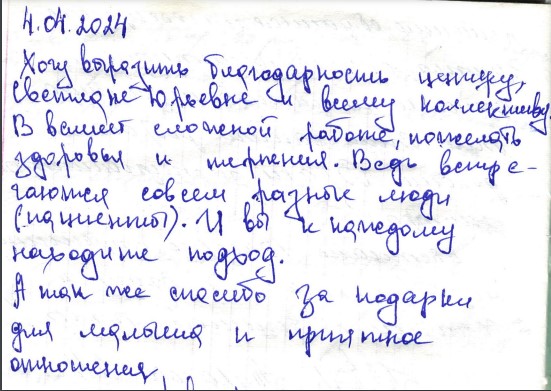 4.04.2024
Хочу выразить благодарность центру,
Светлане Юрьевне и всему коллективу.
В вашей сложной работе, пожелать
здоровья и терпения. Ведь встре-
чаются совсем разные люди
(пациенты). И вы к каждому
находите подход.
А так же спасибо за подарки
для малыша и приятное
отношения